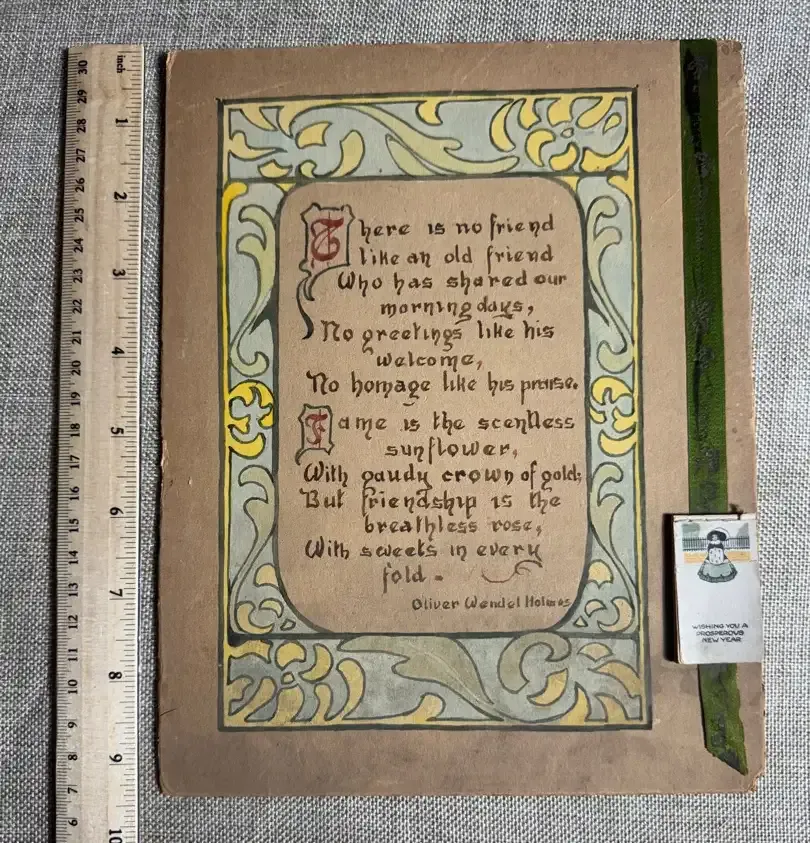 There is no friend
like an old friend
Who has shared our
morning days,
No greetings like his
welcome,
No homage like his praise.
Fame is the scentless
sunflower,
With gaudy crown of gold;
But friendship is the
breathless rose,
With sweets in every
fold.
Oliver Wendel Holmes
WISHING YOU A
PROSPEROUS
NEW YEAR
inch
1
2
3
4
5
6
7
8
9
10
30
29
28
27
26
25
24
23
22
21
20
19
18
17
16
15
14
13
12
11
10
9
8
7
6